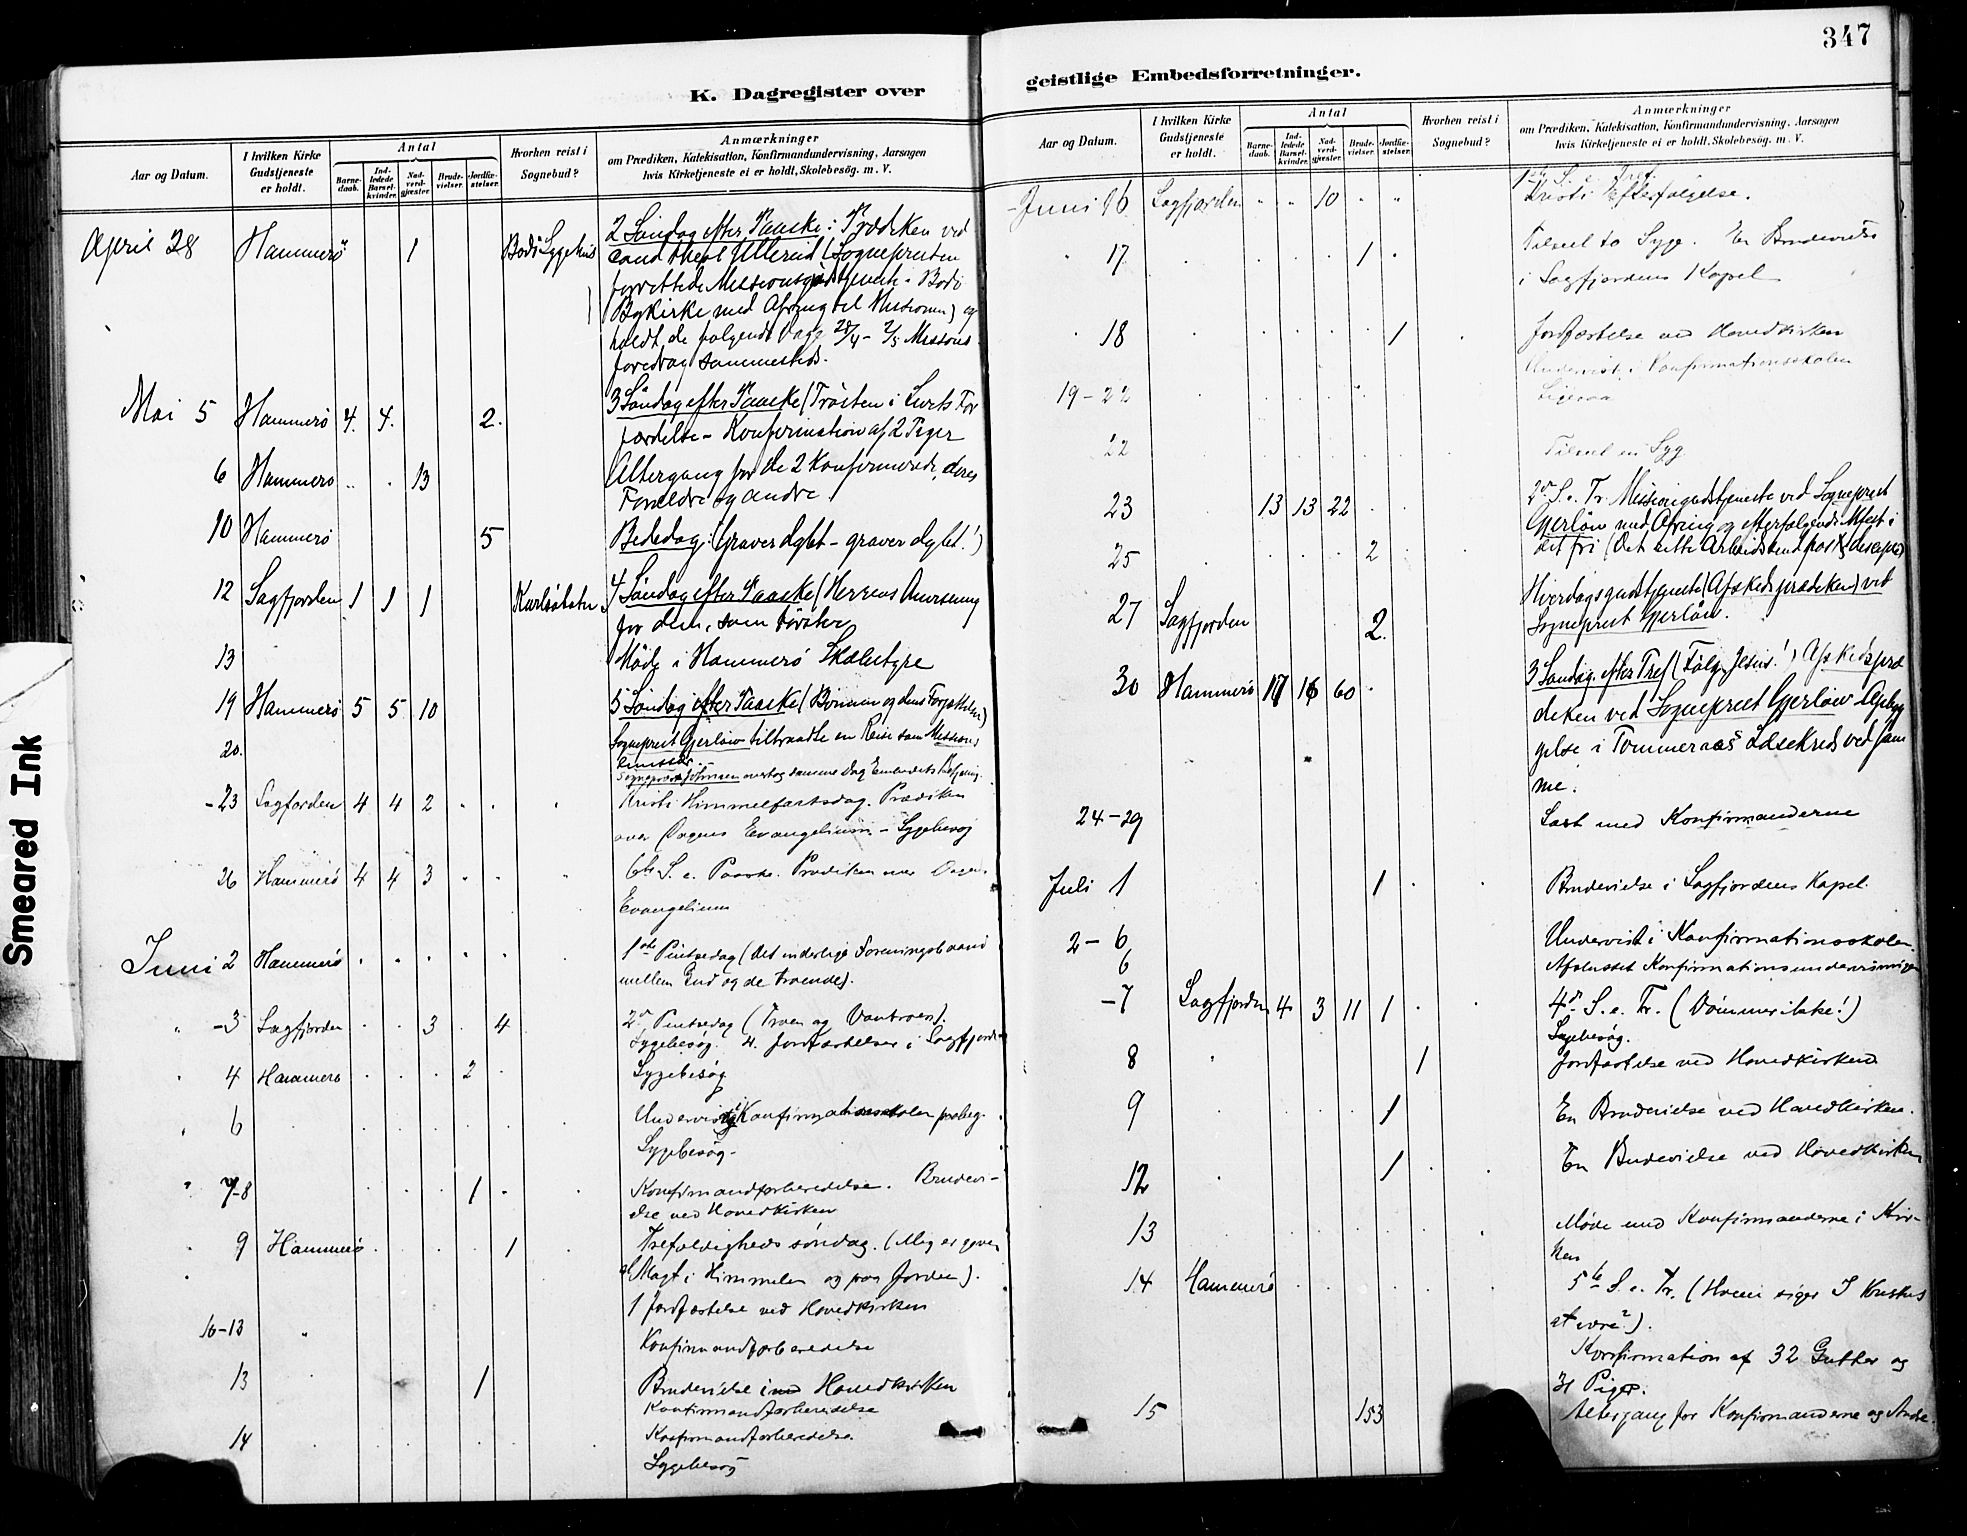 347
K. Dagregister over
geistlige Embedsforretninger.
Smeared Ink
Aar og Datum.
I hvilken Kirke
Gudstjeneste
er holdt.
Antal
Barne-
daab.
Ind-
ledede
Barsel-
kvinder.
Nad-
verd-
gjæster.
Brude-
vielser.
Jordfæ-
stelser.
Hvorhen reist i
Sognebud?
Anmærkninger
om Prædiken, Katekisation, Konfirmandundervisning, Aarsagen
hvis Kirketjeneste ei er holdt, Skolebesøg. m. V.
April 28 Hammerø 1 Bodø Sygehus 2 Søndag efter Paaske: Prædiken ved
cand theol Ullerud (Sognepresten
forrettede Missionsgudstjeneste i Bodø
Bykirke med Ofring til Missionen) og
holdt de følgende Dage 28/4 - 2/5 Missions
foredrag sammesteds.
Mai 5 Hammerø 4. 4. 2. 3 Søndag efter Paaske (Trøsten i
færdelse - Konfirmation af 2 Piger
6 Hammerø 13 Altergang for de 2 Konfirmerede, deres
Forældre og andre.
10 Hammerø 5 Bededag: (Graver dybt - graver dybt!)
12 Sagfjorden 1 1 1 4 Søndag efter Paaske (Herrens Anvisning
for dem, som tørster
13 Møde i Hammerø Skolestyre
19 Hammerø 5 5 10 5 Søndag efter Paaske (Bønnen og dens Forjættelse)
20. Sogneprest Gjerløw tiltraadte en Reise som Missions
overtog samme Dag Embedets Betjening.
-23 Sagfjorden 4 4 2 Kristi Himmelfartsdag. Prædiken
over Dagens Evangelium - Sygebesøg
26 Hammerø 4 4 3 6te S. e. Paaske. Prædiken over Dagens
Evangelium
Juni 2 Hammerø 1ste Pintsedag (Det inderlige Foreningsbaand
mellem Gud og de troende).
" -3 Sagfjorden 3 4 2den Pintsedag (Troen og Vantroen).
Sygebesøg. 4 Jordfæstelser i Sagfjorden
" 4 Hammerø 2 Sygebesøg
" 6 Konfirmationsskolen paabeg.
Sygebesøg -
" 7-8 1 Konfirmandforberedelse. Brudevi-
else ved Hovedkirken
" 9 Hammerø 1 Trefoldigheds søndag. (Mig er given
al Magt i Himmelen og paa Jorden).
1 Jordfæstelse ved Hovedkirken
10-13 " Konfirmandforberedelse
13 1 Brudevielse i Hovedkirken
Konfirmandforberedelse
14 Konfirmandforberedelse.
Sygebesøg
Aar og Datum.
I hvilken Kirke
Gudstjeneste
er holdt.
Antal
Barne-
daab.
Ind-
ledede
Barsel-
kvinder.
Nad-
verd-
gjæster.
Brude-
vielser.
Jordfæ-
stelser.
Hvorhen reist i
Sognebud?
Anmærkninger
om Prædiken, Katekisation, Konfirmandundervisning, Aarsagen
hvis Kirketjeneste ei er holdt. Skolebesøg. m. V.
Juni 16 Sagfjorden 10 1ste S. e. Tref.
Kristi Efterfølgelse.
" 17 1 Tilseet to Syge. En Brudevielse
i Sagfjordens Kapel
" 18 1 Jordfæstelse ved Hovedkirken
Undervist i Konfirmationsskolen
19-22 Ligesaa
22 Tilseet en Syg
23 13 13 22 2den S. e. Tr. Missionsgudstjeneste ved Sogneprest
Gjerløw med Ofring og efterfølgende Mfest i
det fri
25 2
27 Sagfjorden 2. Hverdagsgudstjeneste (Afskedsprædiken) ved
Sogneprest Gjerløw.
30 Hammerø 17 16 60 3 Søndag efter Tref (Følg Jesus!) Afskedspræ
deken ved Sogneprest Gjerløw
gelse i Tømmeraas Læsekreds ved sam
me.
24-29 Læst med Konfirmanderne
Juli 1 1 Brudevielse i Sagfjordens Kapel.
2-6 Undervist i Konfirmationsskolen.
6 Afsluttet Konfirmationsundervisningen
-7 Sagfjorden 4 3 11 1 4de S. e. Tr. (Dømmer ikke!)
Sygebesøg.
8 1 Jordfæstelse ved Hovedkirken
9 1 En Brudevielse ved Hovedkirken.
12 1 En Brudevielse ved Hovedkirken
13 Møde med Konfirmanderne i Kir-
ken
14 Hammerø 5te S. e. Tr. (Hvem siger I Kristus
at være?).
Konfirmation af 32 Gutter og
31 Piger.
15 153 Altergang for Konfirmanderne og Andre.